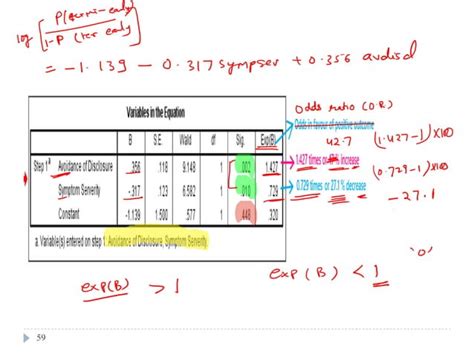 log [ P(termi-early) / 1-P(ter early) ]
= -1.139 - 0.317 sympsev + 0.356 avdisd
Odds ratio (O.R)
Variables in the Equation
Odds in favour of positive outcome
B S.E. Wald df Sig. Exp(B)
42.7 (1.427-1)×100
Step 1ª Avoidance of Disclosure .356 .118 9.148 1 .002 1.427
1.427 times or increase
(0.729-1)×100
Symptom Severity -.317 .123 6.582 1 .010 .729
0.729 times or 27.1 % decrease
-27.1
Constant -1.139 1.500 .577 1 .448 .320
a. Variable(s) entered on step 1: Avoidance of Disclosure, Symptom Severity.
'0'
exp(B) > 1
exp(B) < 1
59